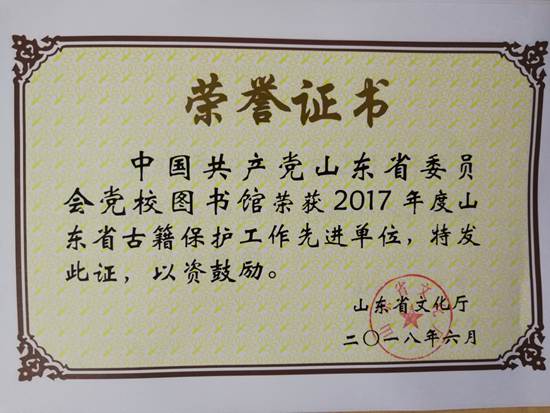 荣誉证书
中国共产党山东省委员
会党校图书馆荣获2017年度山
东省古籍保护工作先进单位，特发
此证，以资鼓励。
山东省文化厅
二〇一八年六月